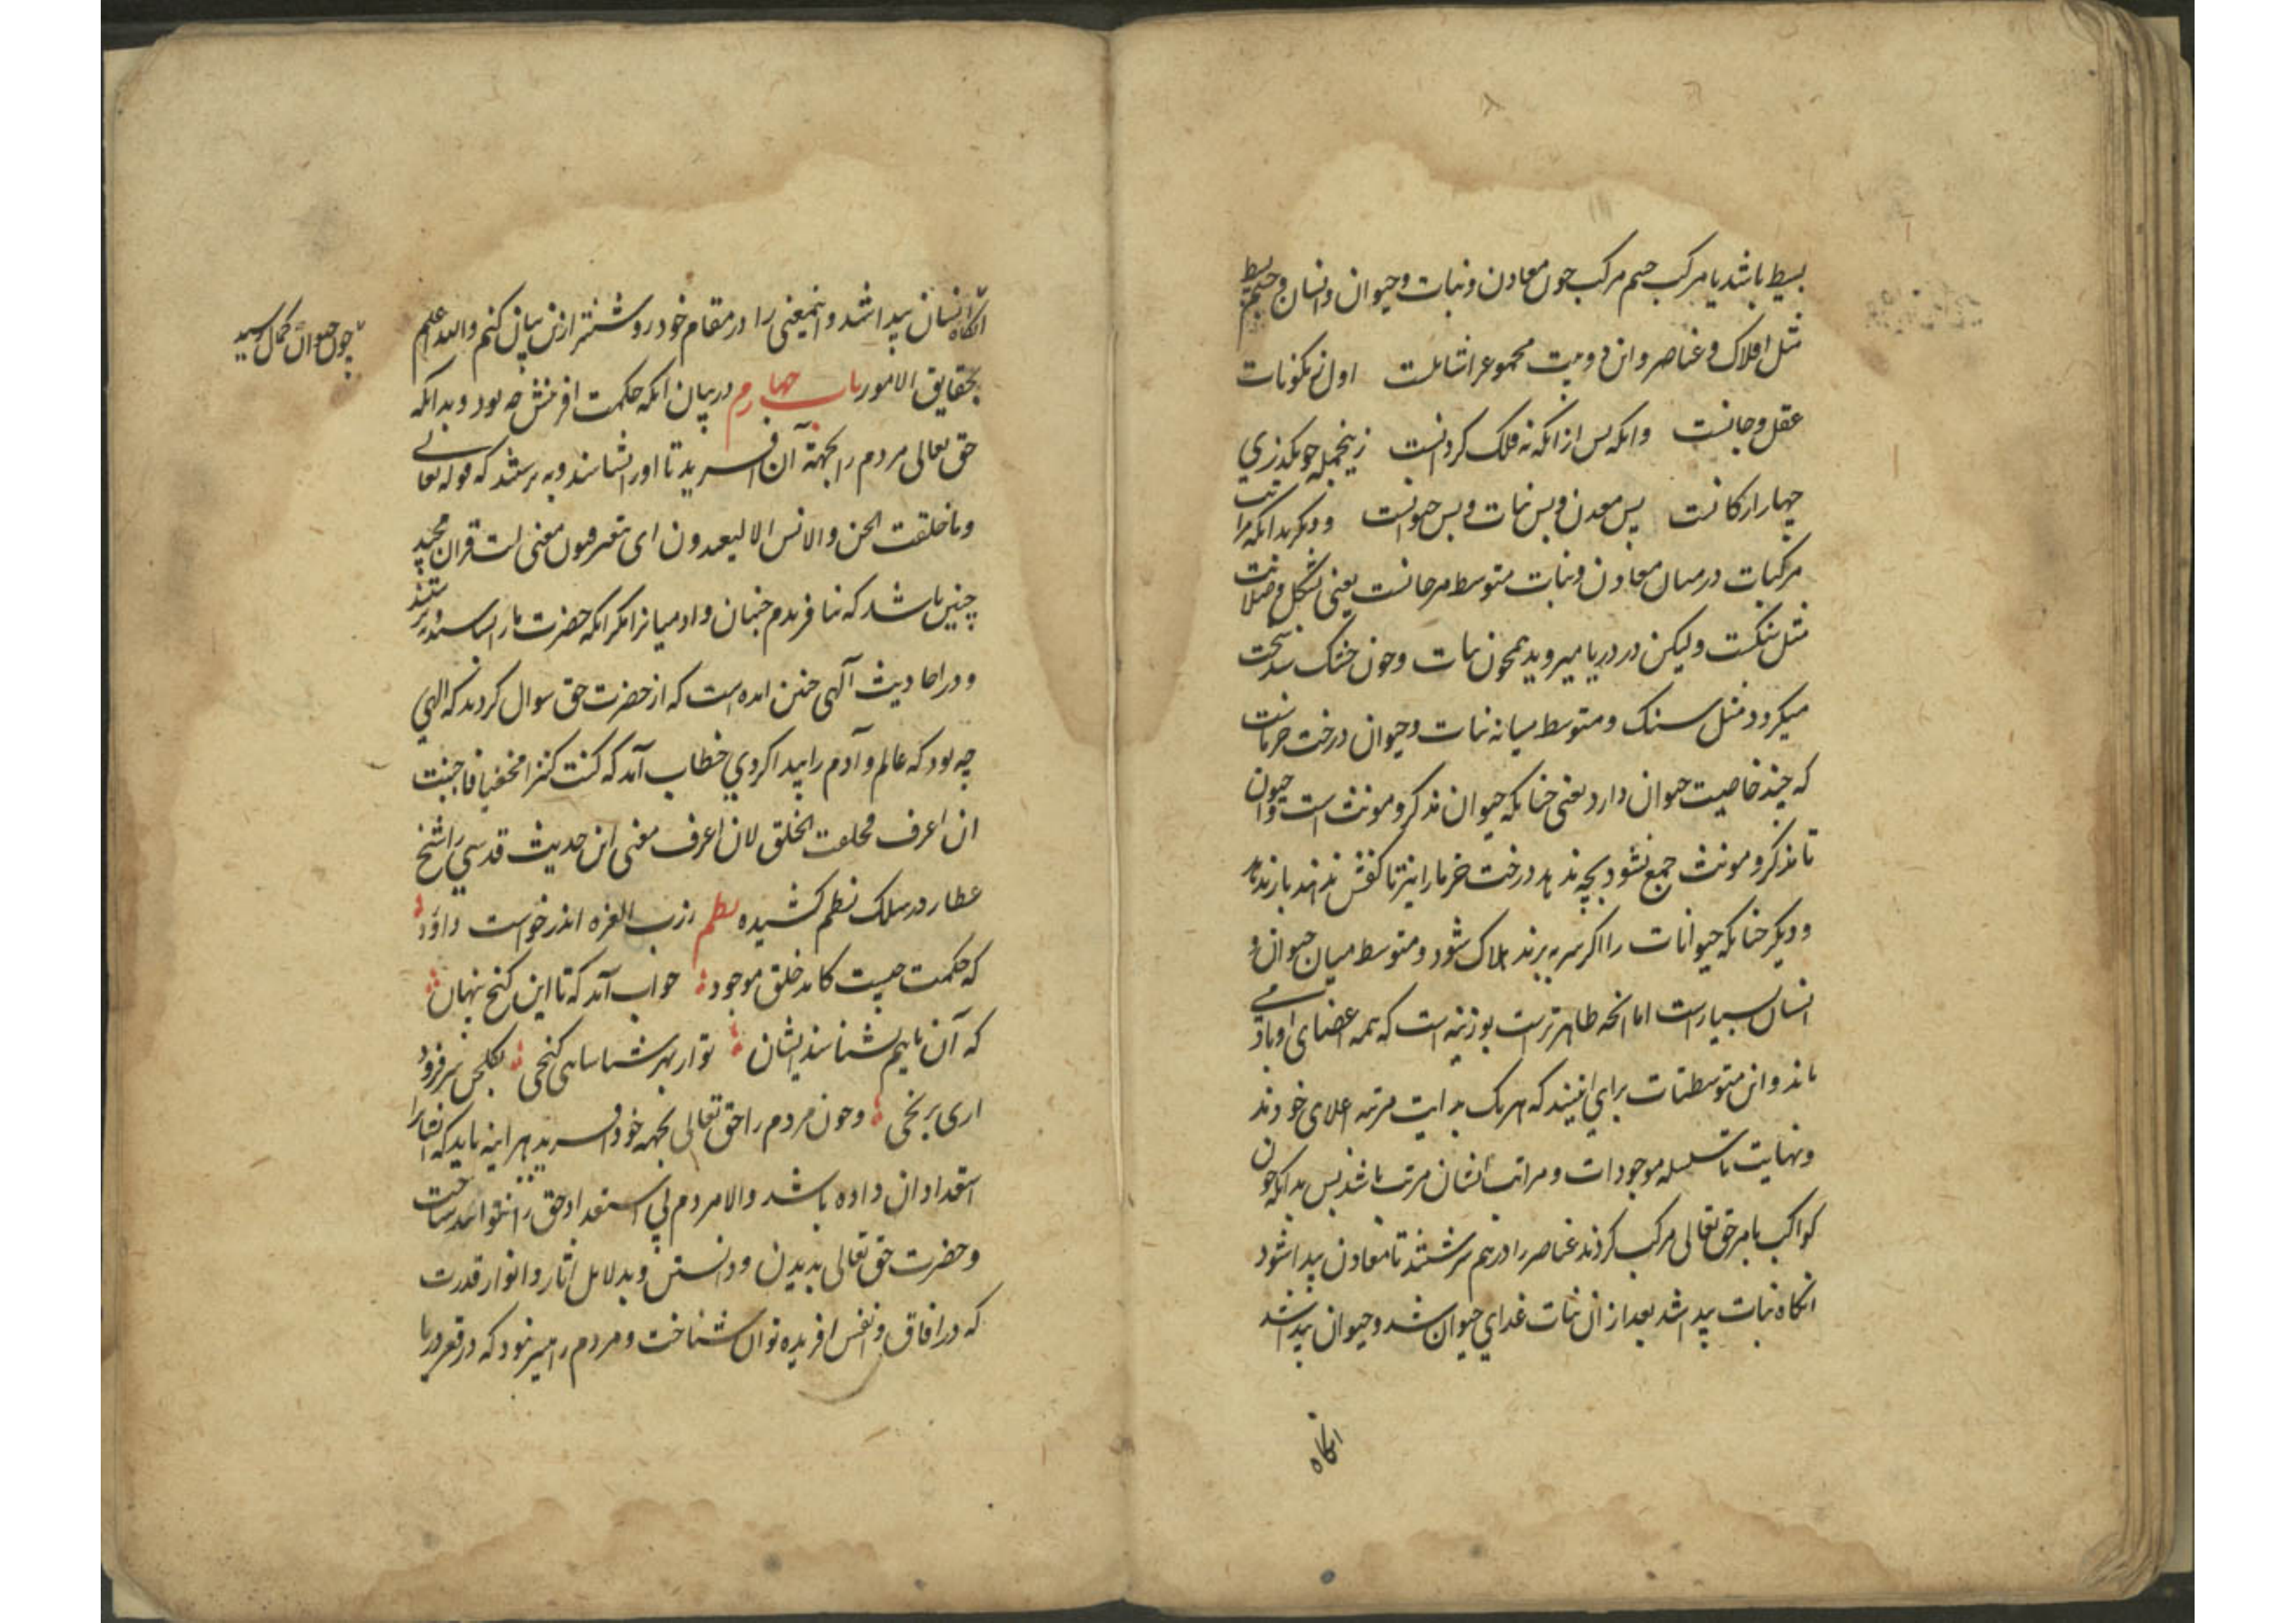 بسیط باشد یا مرکب جسم مرکب چون معادن و نبات و حیوان و انسان و جسم بسیط
مثل افلاک و عناصر و این دو بیت مجموع را شاملست اول ز مکونات
عقل و جانست وانکه پس از انکه نه فلک کردانست زینجمله چو بکذری
چهار ارکانست پس معدن و پس نبات و پس حیوانست و دیکر بدانکه مراتب
مرکبات در میان معادن و نبات متوسط مرجانست یعنی بشکل و صلابت
مثل سنکست ولیکن در دریا میروید همچون نبات و چون خشک شد سخت
میکردد مثل سنک و متوسط میانه نبات و حیوان درخت خرماست
که چند خاصیت حیوان دارد یعنی چنانکه حیوان مذکر و مونث است و حیوان
تا مذکر و مونث جمع نشود بچه ندهد درخت خرما را نیز تا کفش ندهند بار ندهد
و دیکر چنانکه حیوانات را اکر سر ببرند هلاک شود و متوسط میان حیوان و
انسان بسیارست اما انچه ظاهرترست بوزینه است که همه اعضای او بادمی
ماند و این متوسطات برای اینند که هریک بدایت مرتبه اعلای خودند
و نهایت تا سلسله موجودات و مراتب انشان مرتب باشد پس بدانکه چون
کواکب بامر حق تعالی مرکب کردند عناصر را در هم سرشتند تا معادن پیدا شود
انکاه نبات پیدا شد بعد از ان نبات غدای حیوان شد و حیوان پیدا شد
انکاه
انکاه انسان پیدا شد و اینمعنی را در مقام خود روشنتر ازین بیان کنم والله اعلم
چون حیوان بکمال رسید
بحقایق الامور باب چهارم در بیان انکه حکمت افرینش چه بود و بدانکه
حق تعالی مردم را بجهة آن افرید تا او را بشناسند و بپرستند که قوله تعالی
وما خلقت الجن والانس الا لیعبدون ای لیعرفون معنی لست قران مجید
چنین باشد که نیافریدم جنیان و ادمیانرا مکر انکه حضرت ما را بشناسند و پرستند
و در احادیث آلهی چنین امده است که از حضرت حق سوال کردند که الهی
چه بود که عالم و آدم را پیدا کردی خطاب آمد که کنت کنزا مخفیا فاحببت
ان اعرف فخلقت الخلق لان اعرف معنی این حدیث قدسی را شیخ
عطار در سلک نظم کشیده نظم ز رب العزه اندر خواست داود
که حکمت چیست کامد خلق موجود جواب آمد که تا این کنج پنهان
که آن ماییم بشناسند ایشان تو از بهر شناسای کنجی بکلخن سر فرود
اری برنجی و چون مردم را حق تعالی بجهه خود افرید هراینه باید که ایشانرا
استعداد ان داده باشد والا مردم بی استعداد حق را نتوانند شناخت
و حضرت حق تعالی بدیدن و دانستن و بدلایل اثار و انوار قدرت
که در افاق و انفس افریده توان شناخت و مردم را میسر نبود که در قعر دریا